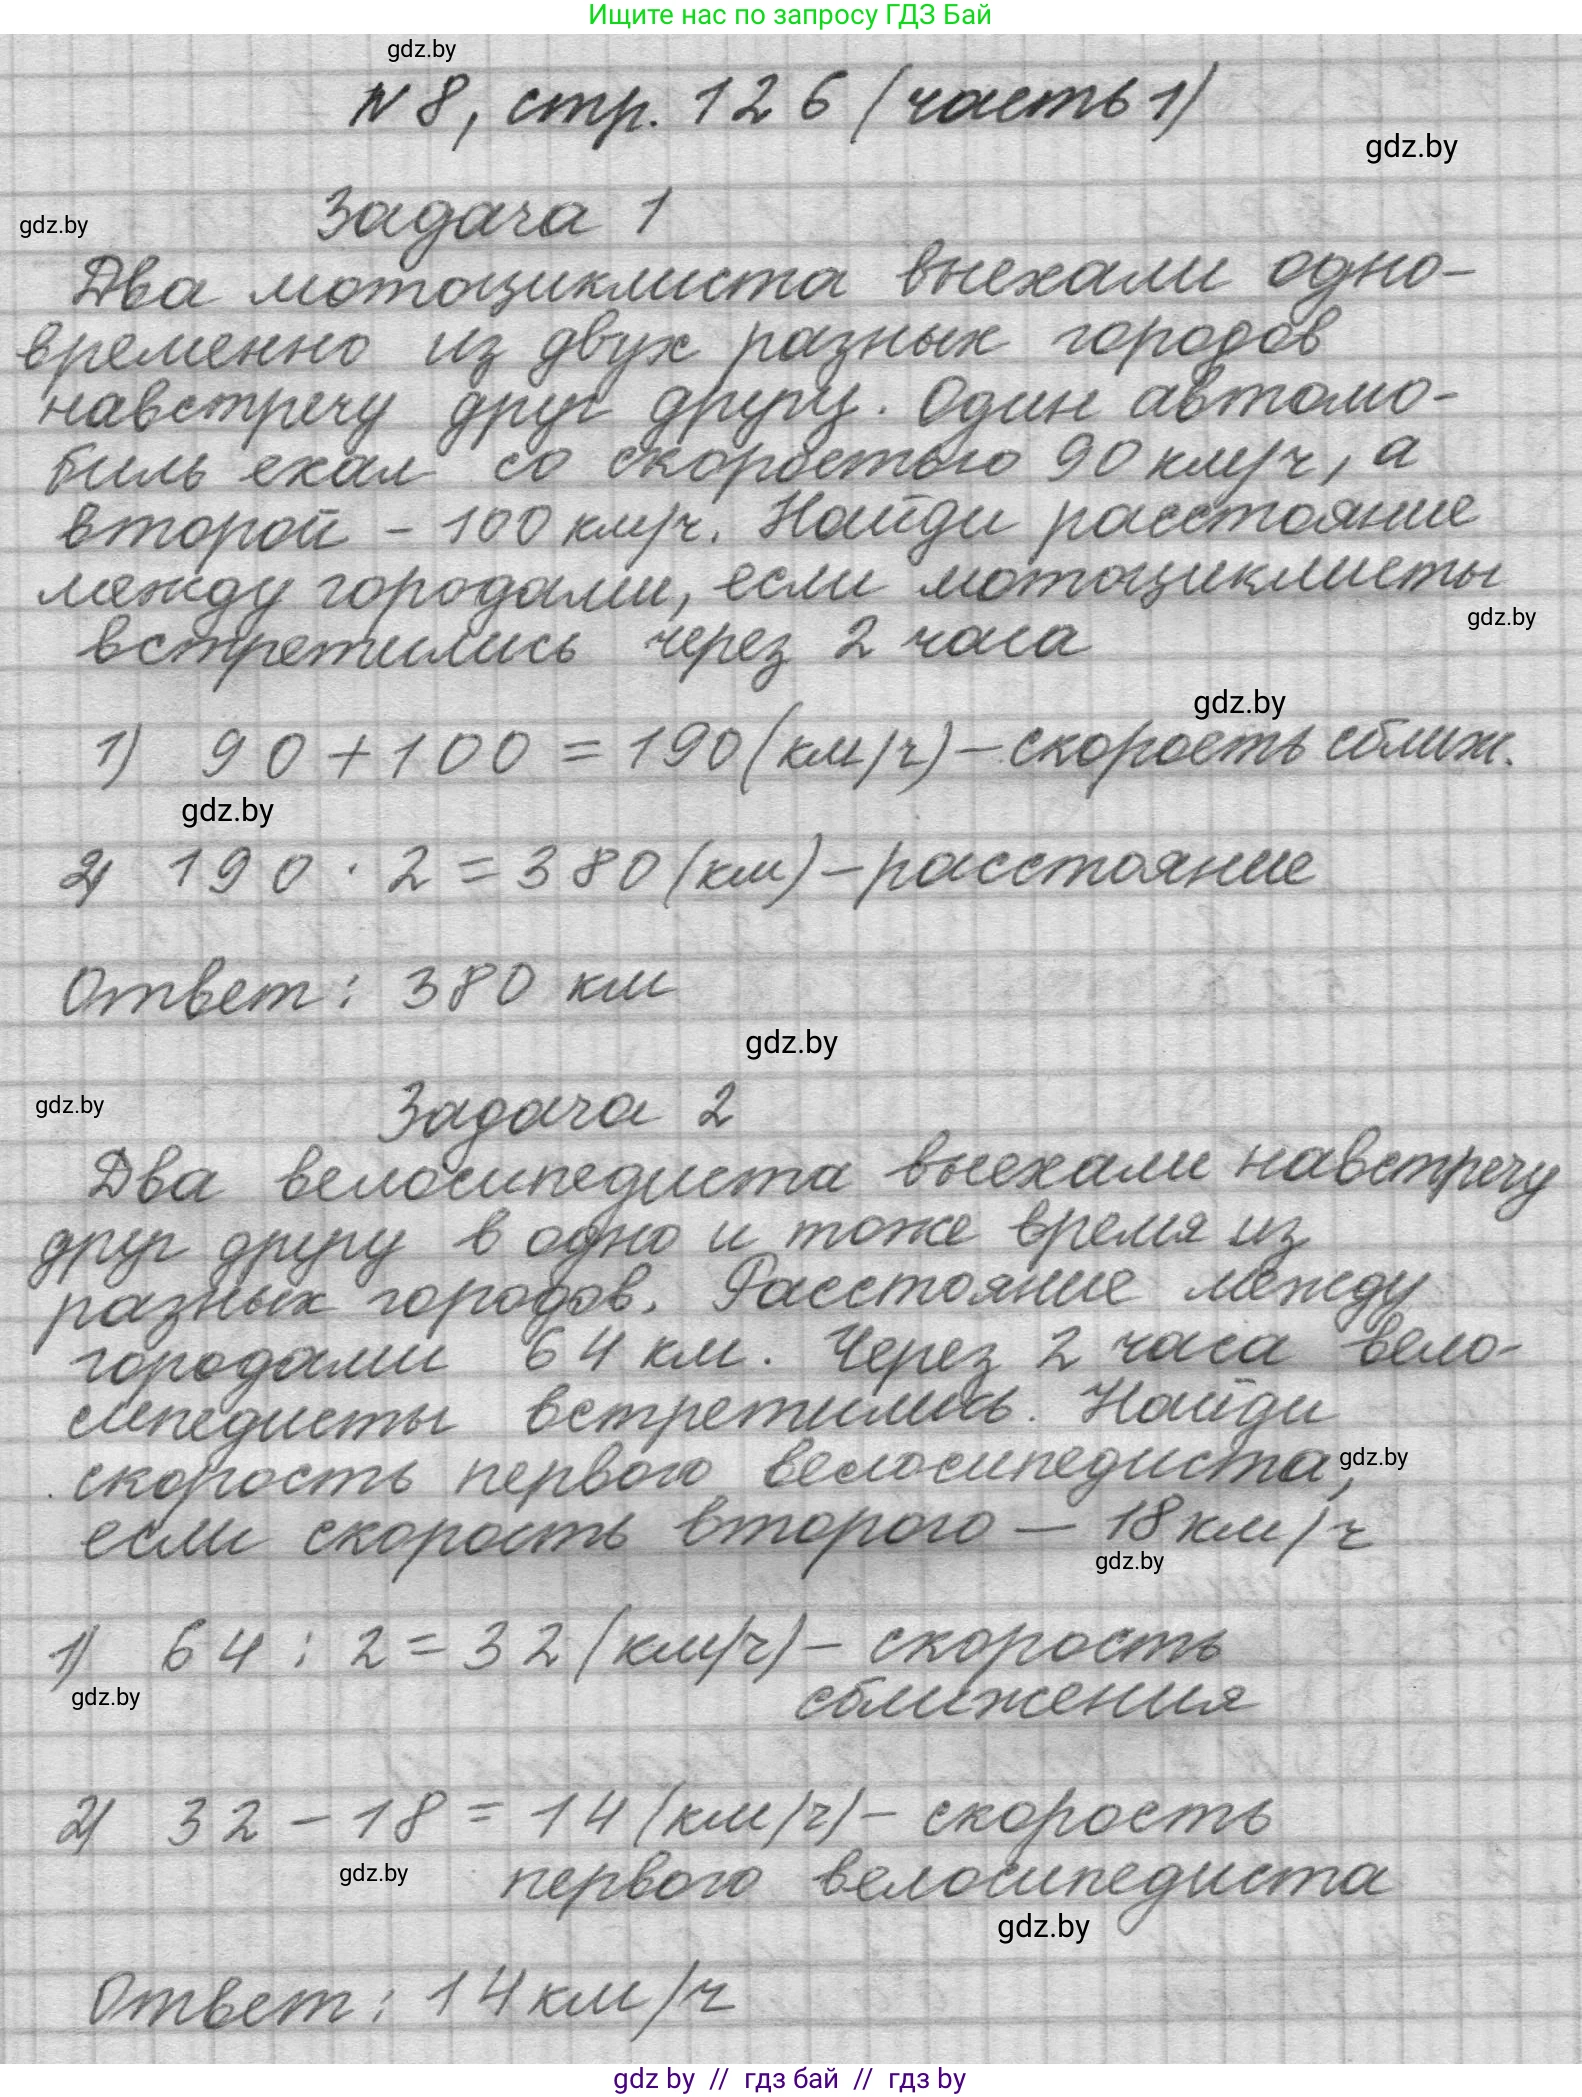 Ищите нас по запросу ГДЗ Бай
gdz.by
№8, стр. 126 (часть 1)
gdz.by
Задача 1
gdz.by
Два мотоциклиста выехали одно-
временно из двух разных городов
навстречу друг другу. Один автомо-
биль ехал со скоростью 90 км/ч, а
второй - 100 км/ч. Найди расстояние
между городами, если мотоциклисты
gdz.by
встретились через 2 часа
gdz.by
1) 90+100=190(км/ч)-скорость сближ.
gdz.by
2) 190·2=380(км)-расстояние
Ответ: 380 км
gdz.by
gdz.by
Задача 2
Два велосипедиста выехали навстречу
друг другу в одно и тоже время из
разных городов. Расстояние между
городами 64 км. Через 2 часа вело-
сипедисты встретились. Найди
gdz.by
скорость первого велосипедиста,
если скорость второго - 18 км/ч
gdz.by
1) 64:2=32(км/ч)- скорость
gdz.by
сближения
2) 32-18=14(км/ч)- скорость
gdz.by
первого велосипедиста
gdz.by
Ответ: 14 км/ч
gdz by // гдз бай // гдз by